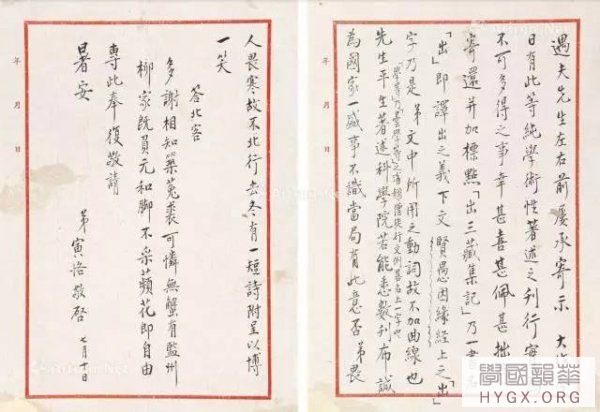 遇夫先生左右前屢承寄示 大
日有此等純學術性著述之刊行實
不可多得之事幸甚喜甚佩甚拙
寄還并加標點「出三藏集記」乃一書名
「出」即譯出之義下文賢愚因緣經上之「出」
字乃是 弟文中所用之動詞故不加曲線也
「學等」乃「曇學等」之省稱僧徒行文例
先生平生著述科學院若能悉數刊布誠
為國家一盛事不識當局有此意否 弟畏
年 月 日
人畏寒故不北行去冬有一短詩附呈以博
一笑
答北客
多謝相知築菟裘可憐無蟹有監州
柳家既負元和腳不采蘋花即自由
專此奉復敬請
暑安
弟 寅恪 敬啓 七月 日
年 月 日
學國韻華
HYGX.ORG